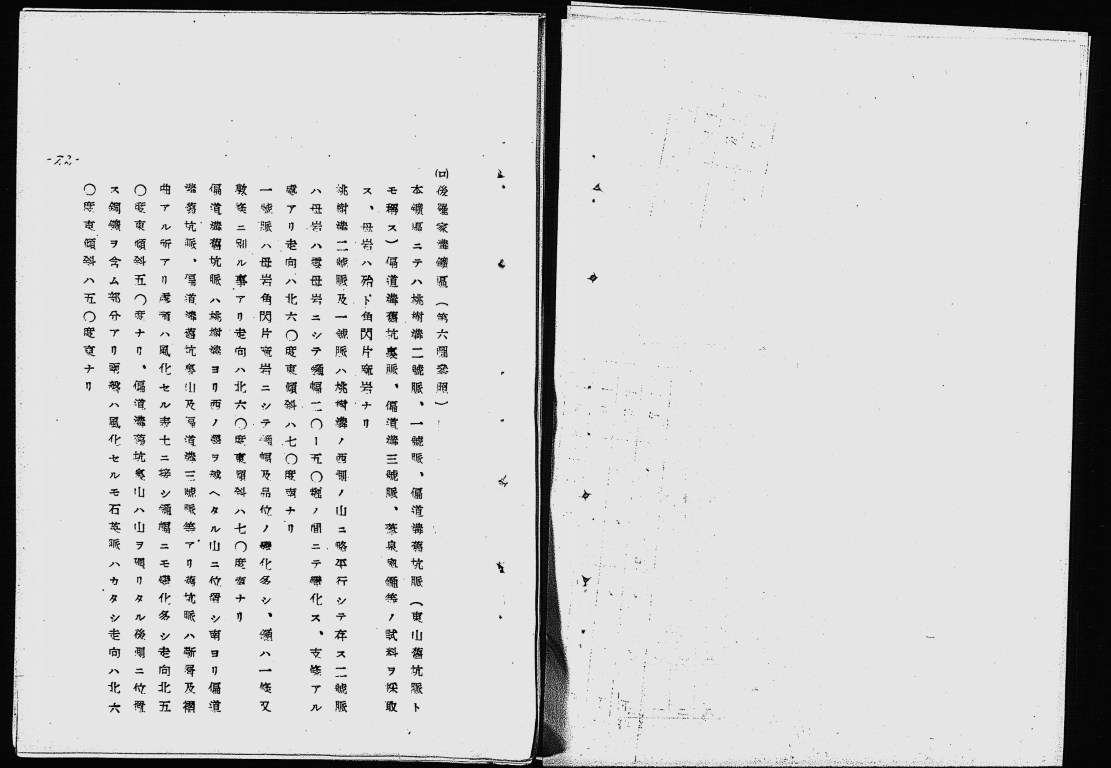 (ロ)後羅家溝鑛區(第六圖參照)
本鑛區ニテハ桃樹溝二號脈、一號脈、偏道溝舊坑脈(東山舊坑脈ト
モ稱ス)偏道溝舊坑裏脈、偏道溝三號脈、等ノ試料ヲ採取
ス、母岩ハ殆ド角閃片麻岩ナリ
桃樹溝二號脈及一號脈ハ桃樹溝ノ西側ノ山ニ略平行シテ存ス二號脈
ハ母岩ハ雲母岩ニシテ鑛幅二〇ー五〇糎ノ間ニテ變化ス、支條アル
處アリ走向ハ北六〇度東傾斜ハ七〇度南ナリ
一號脈ハ母岩角閃片麻岩ニシテ鑛幅及品位ノ變化多シ、鑛ハ一條又
數條ニ別ル事アリ走向ハ北六〇度東傾斜ハ七〇度南ナリ
偏道溝舊坑脈ハ桃樹溝ヨリ西ノ澤ヲ越ヘタル山ニ位置シ南ヨリ偏道
溝舊坑脈、偏道溝舊坑裏山及偏道溝三號脈等アリ舊坑脈ハ斷層及褶
曲アル所アリ露頭ハ風化セル表土ニ接シ鑛幅ニモ變化多シ走向北五
〇度東傾斜五〇度ナリ、偏道溝舊坑裏山ハ山ヲ廻リタル後側ニ位置
ス銅鑛ヲ含ム部分アリ兩磐ハ風化セルモ石英脈ハカタシ走向ハ北六
〇度東傾斜ハ五〇度東ナリ
-72-